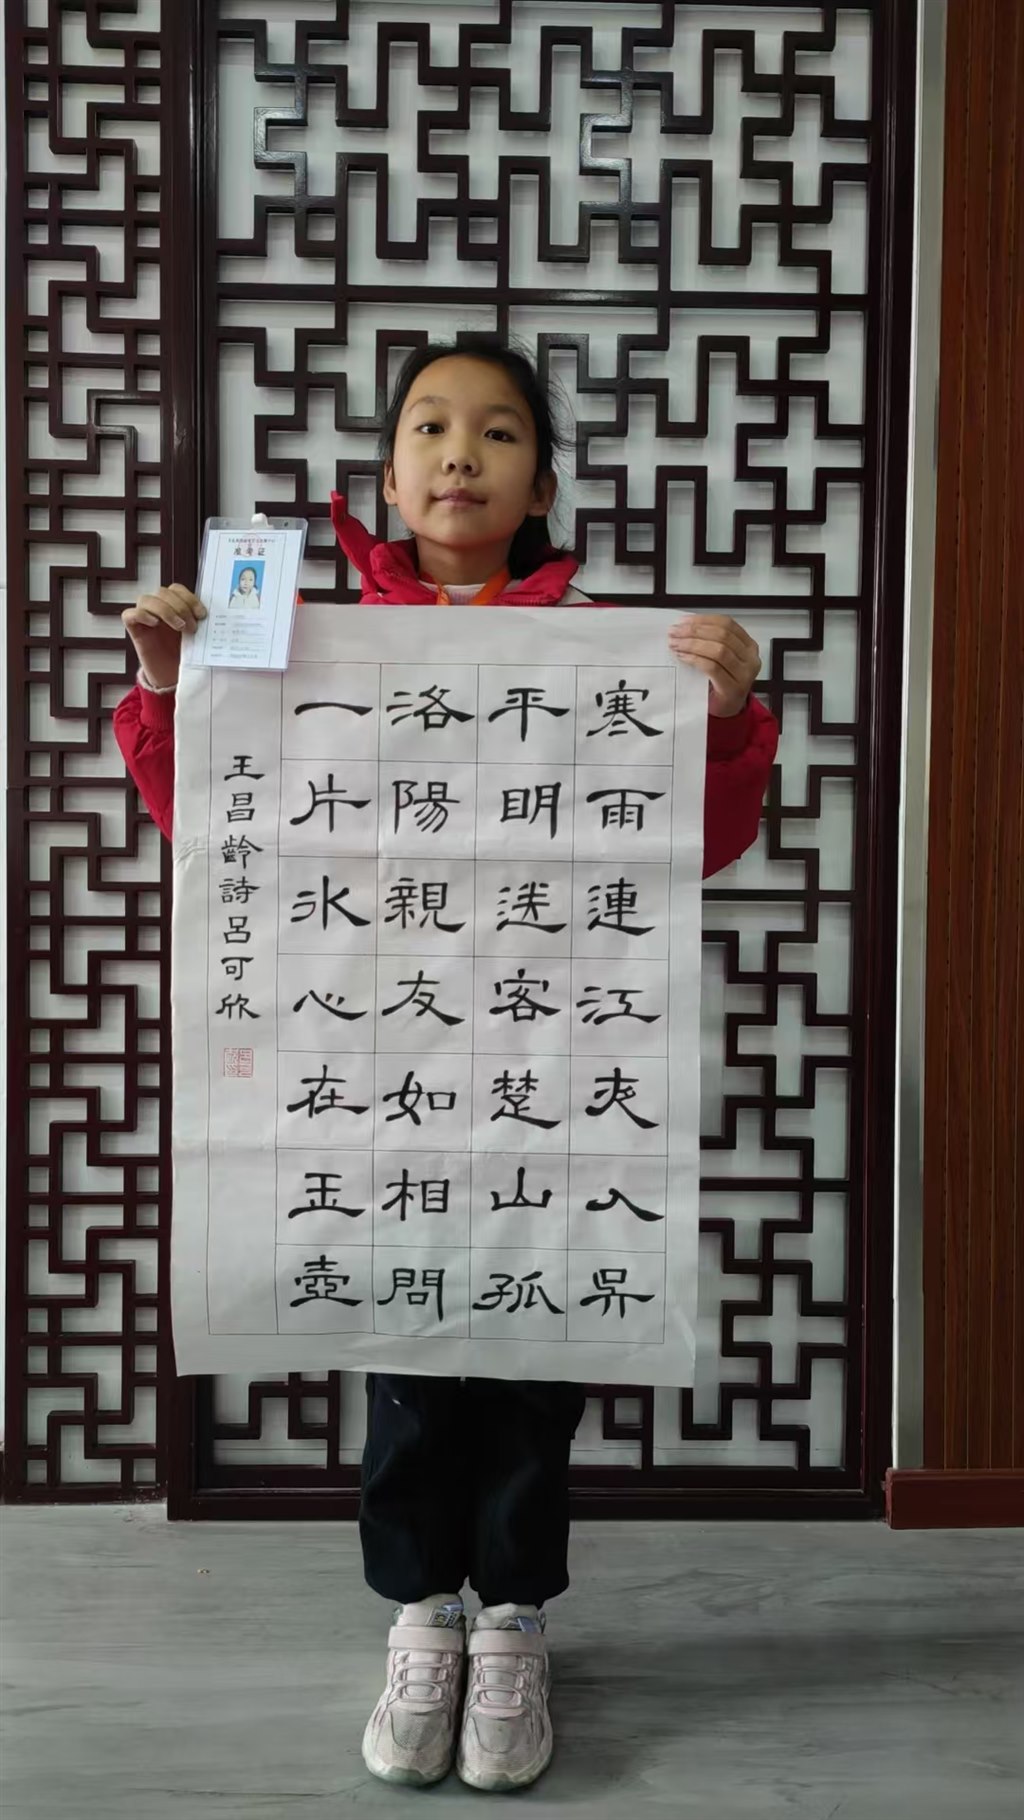 准考证
寒雨連江夜入吳
平明送客楚山孤
洛陽親友如相問
一片冰心在玉壺
王昌齡詩呂可欣